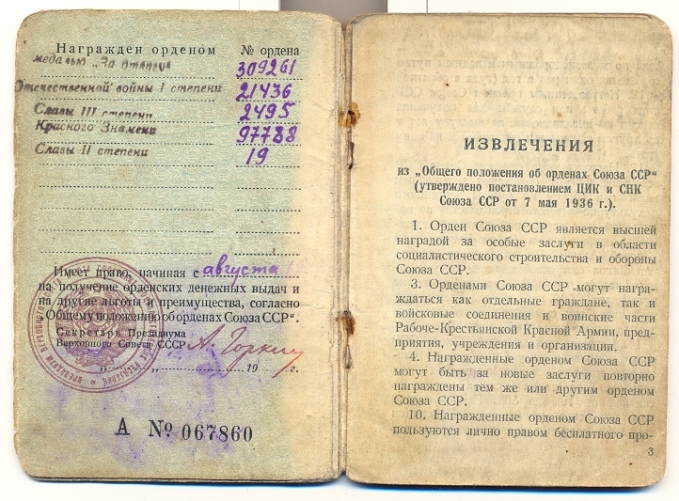 Награжден орденом № ордена
медалью „За отвагу" 309261
Отечественной войны I степени 21436
Славы III степени 2495
Красного Знамени 97738
Славы II степени 19
Имеет право, начиная с августа
на получение орденских денежных выдач и
на другие льготы и преимущества, согласно
„Общему положению об орденах Союза ССР".
Секретарь Президиума
Верховного Совета СССР А. Горкин
„ „ 19 г.
А № 067860
ИЗВЛЕЧЕНИЯ
из „Общего положения об орденах Союза ССР"
(утверждено постановлением ЦИК и СНК
Союза ССР от 7 мая 1936 г.).
1. Орден Союза ССР является высшей
наградой за особые заслуги в области
социалистического строительства и обороны
Союза ССР.
3. Орденами Союза ССР могут награ-
ждаться как отдельные граждане, так и
войсковые соединения и воинские части
Рабоче-Крестьянской Красной Армии, пред-
приятия, учреждения и организации.
4. Награжденные орденом Союза ССР
могут быть за новые заслуги повторно
награждены тем же или другим орденом
Союза ССР.
10. Награжденные орденом Союза ССР
пользуются лично правом бесплатного про-
3